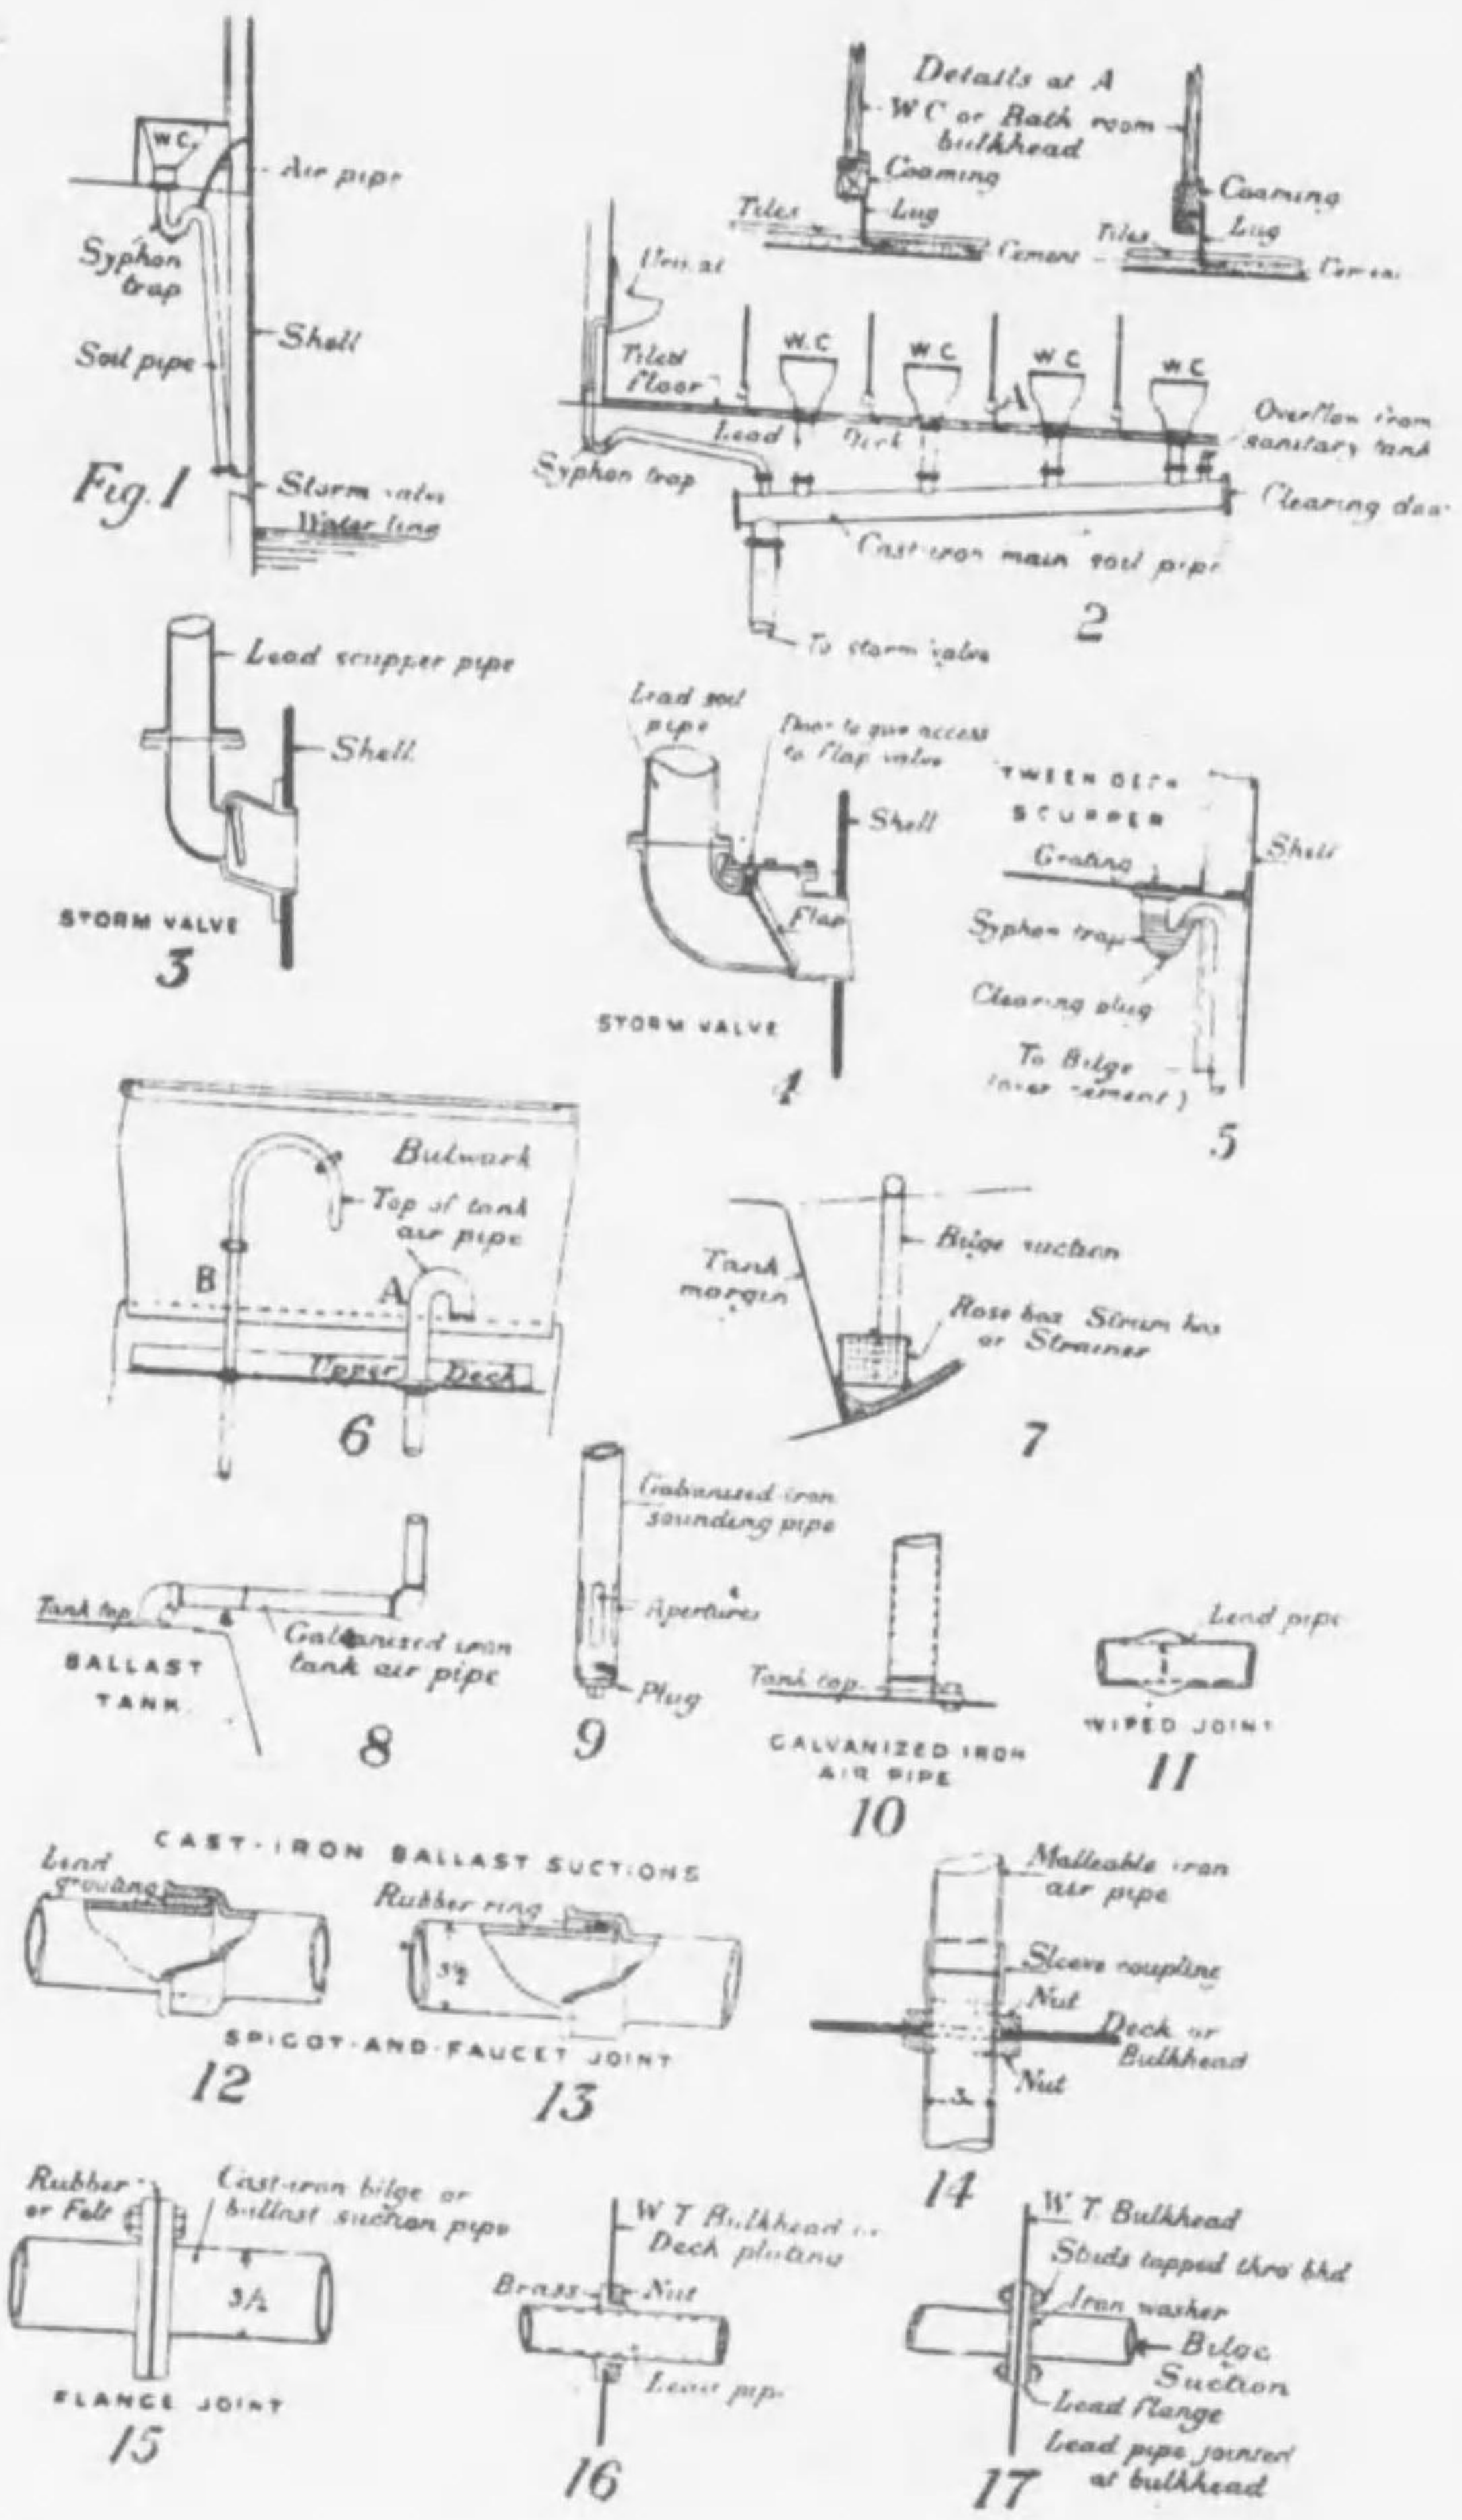 W C.
Air pipe
Syphon
trap
Shell
Soil pipe
Fig. 1
Storm valve
Water line
Details at A
W C or Bath room
bulkhead
Coaming
Coaming
Lug
Lug
Tiles
Tiles
Cement
Urinal
Tiled
floor
W.C
W C
W C
W C
A
Lead
Syphon trap
Overflow from
sanitary tank
Clearing door
Cast-iron main soil pipe
To storm valve
2
Lead scupper pipe
Shell
STORM VALVE
3
Lead soil
pipe
Door to give access
to flap valve
Shell
Flap
STORM VALVE
4
TWEEN DECK
SCUPPER
Grating
Shell
Syphon trap
Clearing plug
To Bilge
(over cement)
5
Bulwark
Top of tank
air pipe
B
A
Upper Deck
6
Bilge suction
Tank
margin
Rose box Strum box
or Strainer
7
Tank top
BALLAST
TANK
Galvanised iron
tank air pipe
8
Galvanised iron
sounding pipe
Apertures
Plug
9
Tank top
GALVANIZED IRON
AIR PIPE
10
Lead pipe
WIPED JOINT
11
CAST-IRON BALLAST SUCTIONS
Lead
grouting
Rubber ring
3½
SPIGOT-AND-FAUCET JOINT
12
13
Malleable iron
air pipe
Sleeve coupling
Nut
Deck or
Bulkhead
Nut
3
14
Rubber
or Felt
Cast-iron bilge or
ballast suction pipe
3½
FLANGE JOINT
15
W T Bulkhead or
Deck plating
Brass
Nut
Lead pipe
16
W T Bulkhead
Studs tapped thro' bhd
Iron washer
Bilge
Suction
Lead flange
Lead pipe jointed
at bulkhead
17